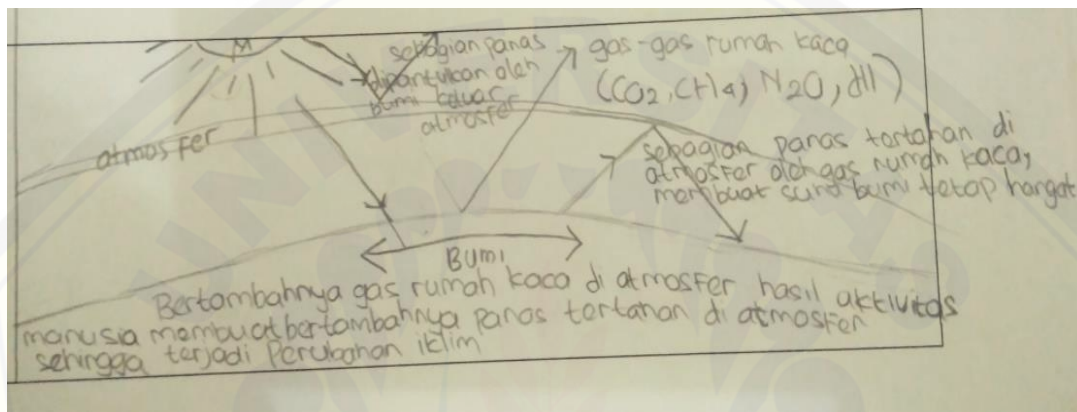 sebagian panas
dipantulkan oleh
bumi keluar
atmosfer
gas-gas rumah kaca
(CO2, CH4, N2O, dll)
atmosfer
sebagian panas tertahan di
atmosfer oleh gas rumah kaca,
membuat suhu bumi tetap hangat
Bumi
Bertambahnya gas rumah kaca di atmosfer hasil aktivitas
manusia membuat bertambahnya panas tertahan di atmosfer
sehingga terjadi Perubahan iklim